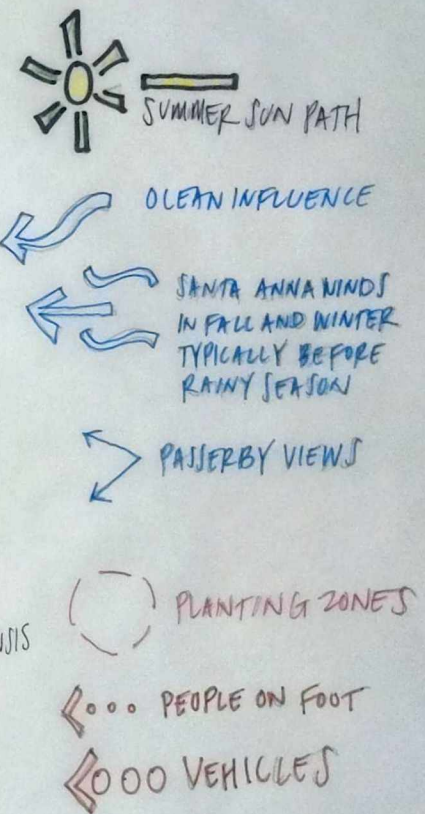 SUMMER SUN PATH
OCEAN INFLUENCE
SANTA ANNA WINDS
IN FALL AND WINTER
TYPICALLY BEFORE
RAINY SEASON
PASSERBY VIEWS
PLANTING ZONES
PEOPLE ON FOOT
VEHICLES